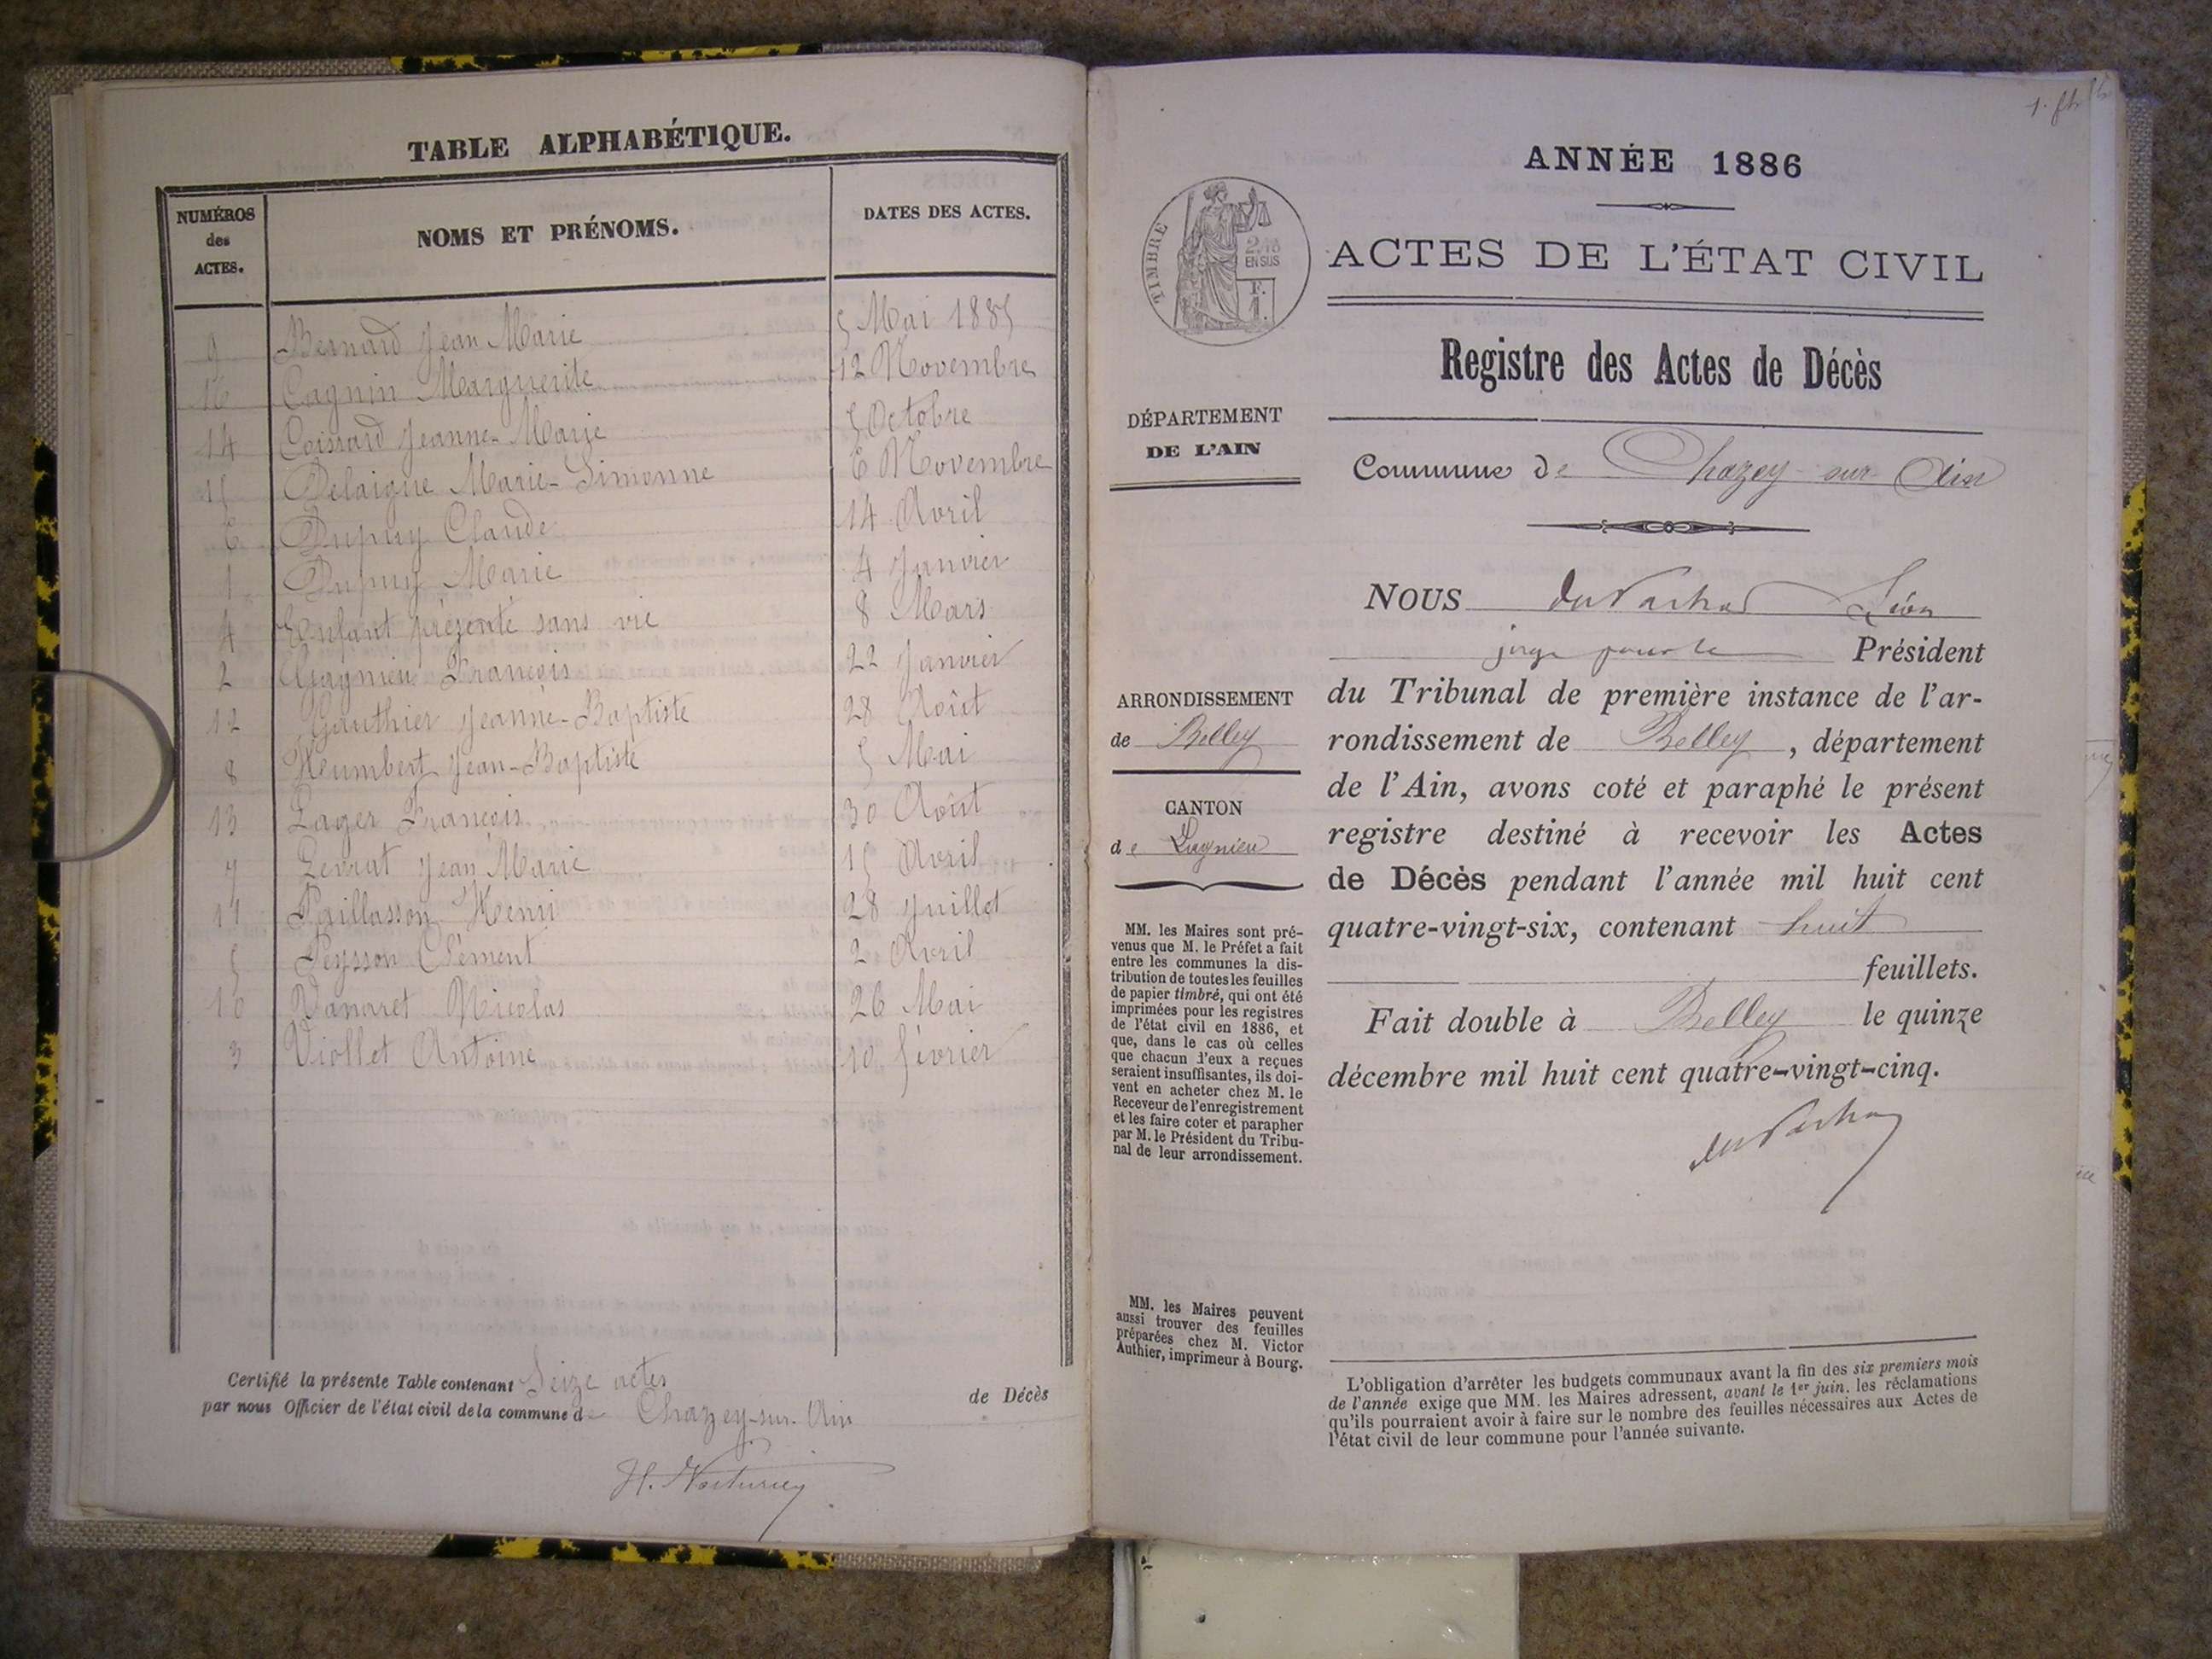 TABLE ALPHABÉTIQUE.
NUMÉROS
des
ACTES.
NOMS ET PRÉNOMS.
DATES DES ACTES.
9 Bernard Jean Marie 5 Mai 1885
16 Cagnin Marguerite 12 Novembre
14 Coissard Jeanne-Marie 5 Octobre
15 Delaigue Marie-Simonne 6 Novembre
6 Dupuy Claude 14 Avril
1 Dupuy Marie 4 Janvier
4 Enfant présenté sans vie 8 Mars
2 Gagnieu François 22 Janvier
12 Gauthier Jeanne-Baptiste 28 Août
8 Heumbert Jean-Baptiste 5 Mai
13 Lager François 30 Août
7 Levrat Jean Marie 15 Avril
11 Paillasson Henri 28 Juillet
5 Peysson Clément 2 Avril
10 Vanaret Nicolas 26 Mai
3 Viollet Antoine 10 février
Certifié la présente Table contenant Seize actes de Décès
par nous Officier de l'état civil de la commune de Chazey-sur-Ain
ANNÉE 1886
TIMBRE
2/10
EN SUS
F.
1.
ACTES DE L'ÉTAT CIVIL
Registre des Actes de Décès
DÉPARTEMENT
DE L'AIN
Commune de Chazey-sur-Ain
NOUS Léon
juge pour le Président
du Tribunal de première instance de l'ar-
rondissement de Belley, département
de l'Ain, avons coté et paraphé le présent
registre destiné à recevoir les Actes
de Décès pendant l'année mil huit cent
quatre-vingt-six, contenant huit
feuillets.
Fait double à Belley le quinze
décembre mil huit cent quatre-vingt-cinq.
ARRONDISSEMENT
de Belley
CANTON
de Lagnieu
MM. les Maires sont pré-
venus que M. le Préfet a fait
entre les communes la dis-
tribution de toutes les feuilles
de papier timbré, qui ont été
imprimées pour les registres
de l'état civil en 1886, et
que, dans le cas où celles
que chacun d'eux a reçues
seraient insuffisantes, ils doi-
vent en acheter chez M. le
Receveur de l'enregistrement
et les faire coter et parapher
par M. le Président du Tribu-
nal de leur arrondissement.
MM. les Maires peuvent
aussi trouver des feuilles
préparées chez M. Victor
Authier, imprimeur à Bourg.
L'obligation d'arrêter les budgets communaux avant la fin des six premiers mois
de l'année exige que MM. les Maires adressent, avant le 1er juin, les réclamations
qu'ils pourraient avoir à faire sur le nombre des feuilles nécessaires aux Actes de
l'état civil de leur commune pour l'année suivante.